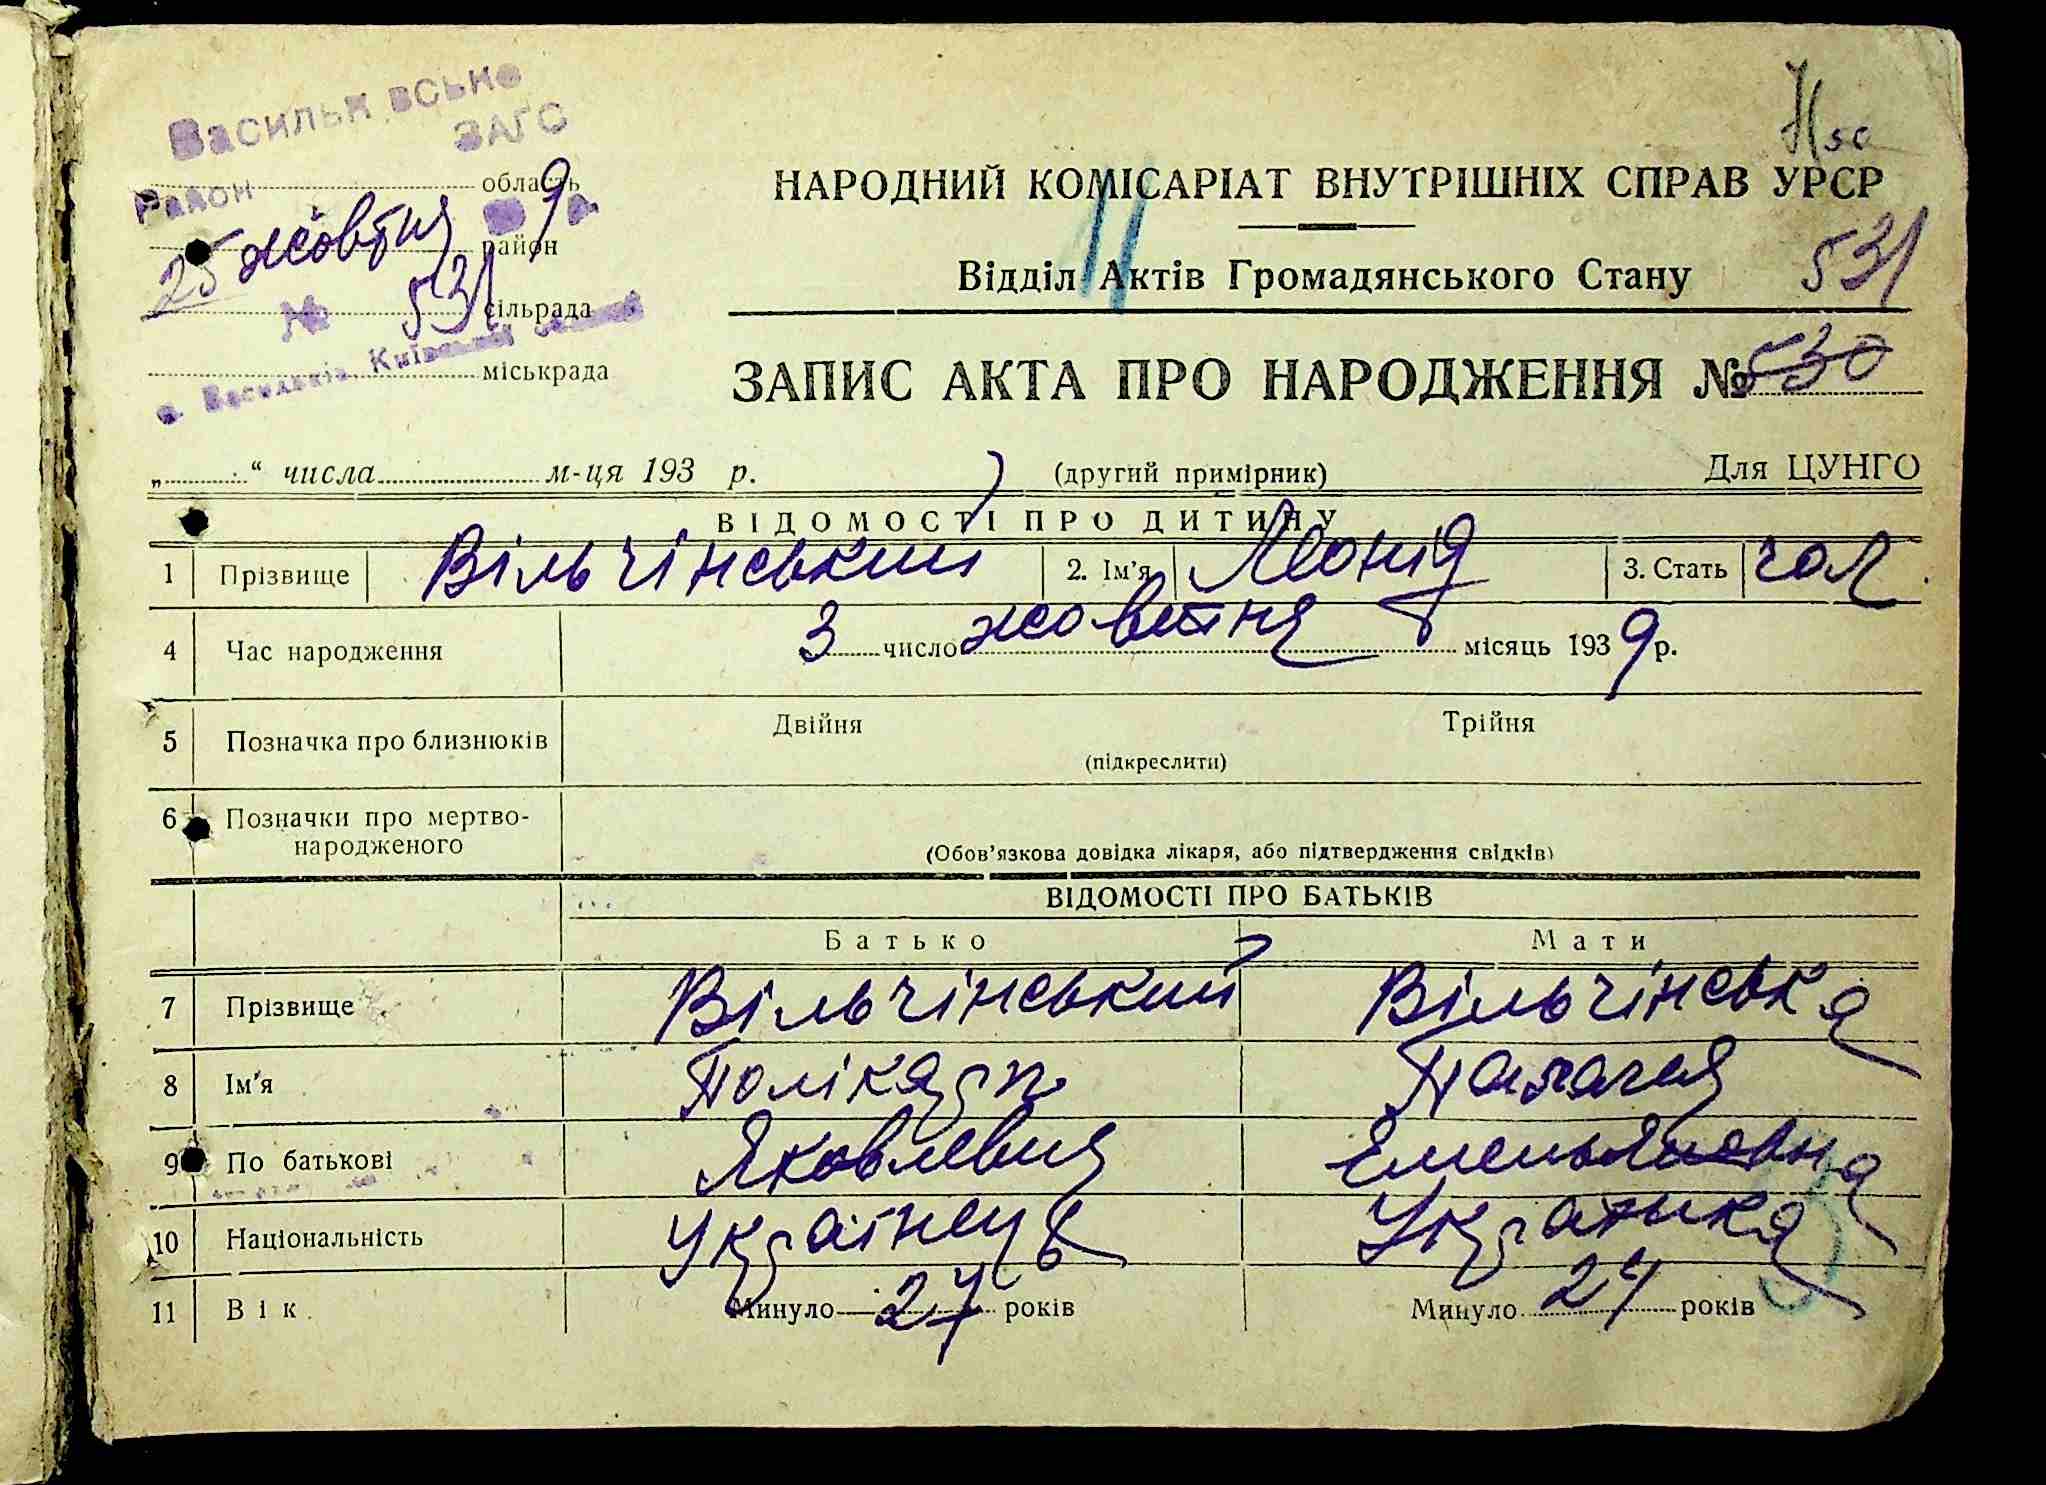 Васильківське
ЗАГС
Район
область
25 жовтня 9
район
№ 531
сільрада
м. Васильків, Київської
міськрада
НАРОДНИЙ КОМІСАРІАТ ВНУТРІШНІХ СПРАВ УРСР
11
Відділ Актів Громадянського Стану
531
ЗАПИС АКТА ПРО НАРОДЖЕННЯ № 530
„ “ числа м-ця 193 р. (другий примірник) Для ЦУНГО
ВІДОМОСТІ ПРО ДИТИНУ
1 Прізвище Вільчінський 2. Ім'я Леонід 3. Стать чол
4 Час народження 3 число жовтня місяць 1939 р.
5 Позначка про близнюків Двійня Трійня
(підкреслити)
6 Позначки про мертво-
народженого
(Обов'язкова довідка лікаря, або підтвердження свідків)
ВІДОМОСТІ ПРО БАТЬКІВ
Батько Мати
7 Прізвище Вільчінський Вільчінська
8 Ім'я Полікарп Палагея
9 По батькові Яковлевич Емельяновна
10 Національність Українець Українка
11 Вік Минуло 27 років Минуло 24 років